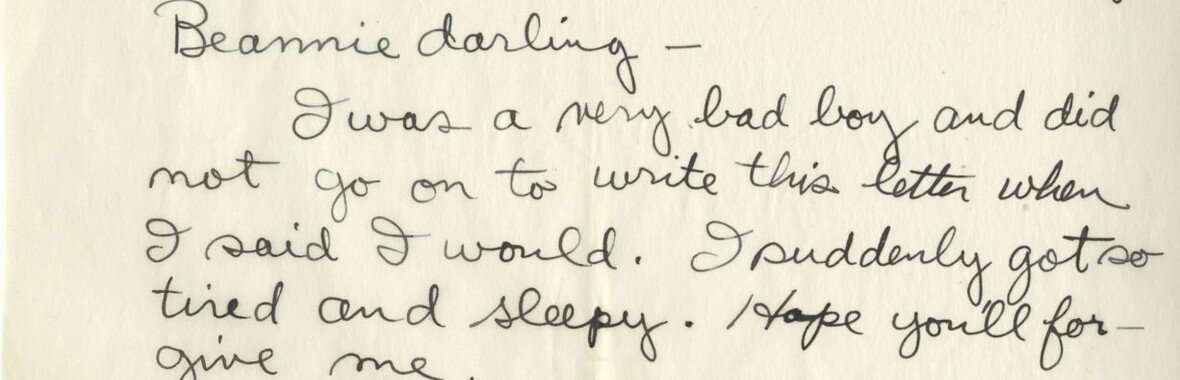 Beannie darling —
I was a very bad boy and did
not go on to write this letter when
I said I would. I suddenly got so
tired and sleepy. Hope you'll for-
give me.